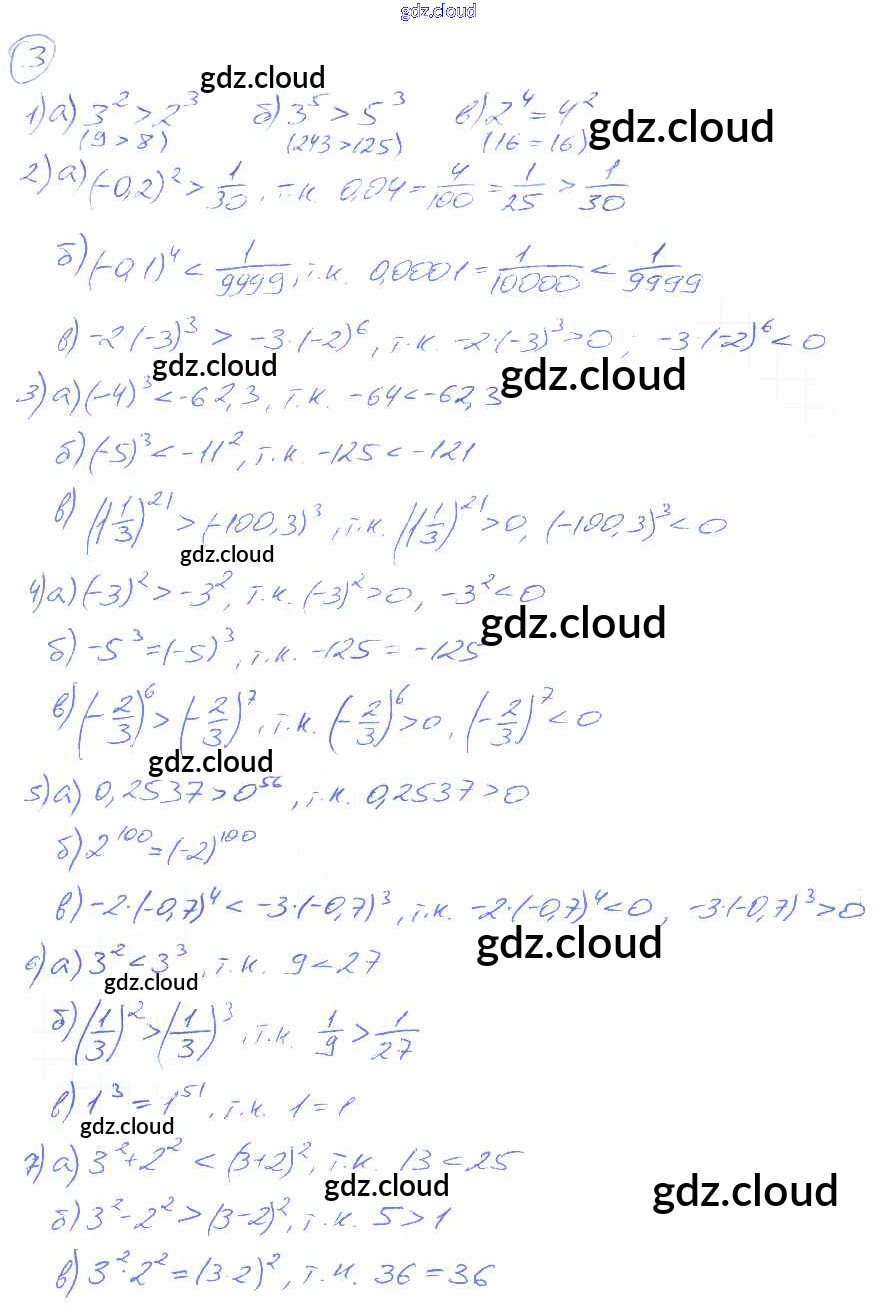 gdz.cloud
3
gdz.cloud
1) а) 3² > 2³ б) 3⁵ > 5³ в) 2⁴ = 4²
gdz.cloud
(9 > 8) (243 > 125) (16 = 16)
2) а) (-0,2)² > 1/30, т.к. 0,04 = 4/100 = 1/25 > 1/30
б) (-0,1)⁴ < 1/9999, т.к. 0,0001 = 1/10000 < 1/9999
в) -2·(-3)³ > -3·(-2)⁶, т.к. -2·(-3)³ > 0; -3·(-2)⁶ < 0
gdz.cloud gdz.cloud
3) а) (-4)³ < -62,3, т.к. -64 < -62,3
б) (-5)³ < -11², т.к. -125 < -121
в) (1 1/3)²¹ > (-100,3)³, т.к. (1 1/3)²¹ > 0, (-100,3)³ < 0
gdz.cloud
4) а) (-3)² > -3², т.к. (-3)² > 0, -3² < 0
gdz.cloud
б) -5³ = (-5)³, т.к. -125 = -125
в) (-2/3)⁶ > (-2/3)⁷, т.к. (-2/3)⁶ > 0, (-2/3)⁷ < 0
gdz.cloud
5) а) 0,2537 > 0⁵⁶, т.к. 0,2537 > 0
б) 2¹⁰⁰ = (-2)¹⁰⁰
в) -2·(-0,7)⁴ < -3·(-0,7)³, т.к. -2·(-0,7)⁴ < 0, -3·(-0,7)³ > 0
gdz.cloud
6) а) 3² < 3³, т.к. 9 < 27
gdz.cloud
б) (1/3)² > (1/3)³, т.к. 1/9 > 1/27
в) 1³ = 1⁵¹, т.к. 1 = 1
gdz.cloud
7) а) 3² + 2² < (3+2)², т.к. 13 < 25
gdz.cloud gdz.cloud
б) 3² - 2² > (3-2)², т.к. 5 > 1
в) 3²·2² = (3·2)², т.к. 36 = 36